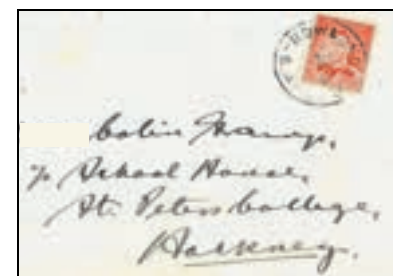 Colin
℅ School House,
St. Peters College,
Hackney.